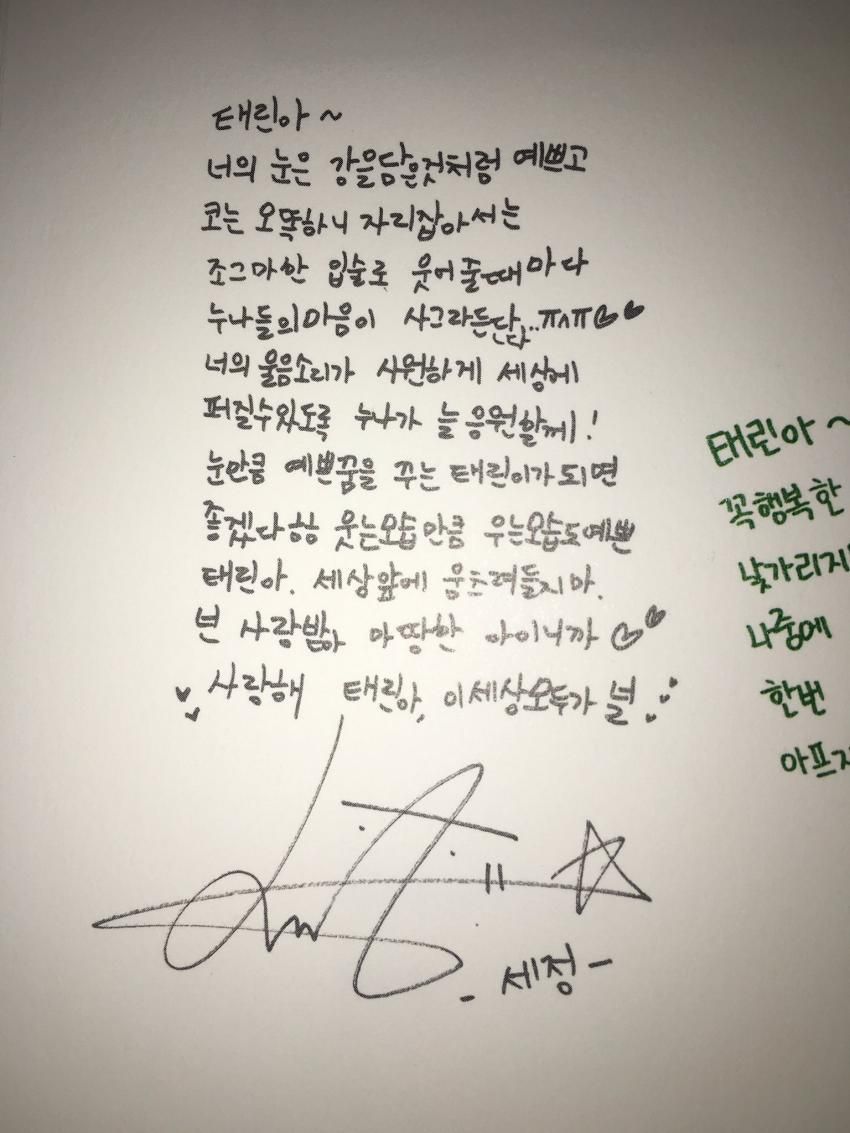 태린아 ~
너의 눈은 강을담은것처럼 예쁘고
코는 오똑하니 자리잡아서는
조그마한 입술로 웃어줄때마다
누나들의마음이 사그라든단다..ㅠㅅㅠ♡♥
너의 울음소리가 시원하게 세상에
퍼질수있도록 누나가 늘 응원할께!
눈만큼 예쁜꿈을 꾸는 태린이가되면
좋겠다 하핳 웃는모습만큼 우는모습도예쁜
태린아. 세상앞에 움츠려들지마.
넌 사랑받아 마땅한 아이니까 ♡♥
♥ 사랑해 태린아, 이세상모두가 널
- 세정 -
태린아 ~
꼭행복한
낯가리지
나중에
한번
아프지